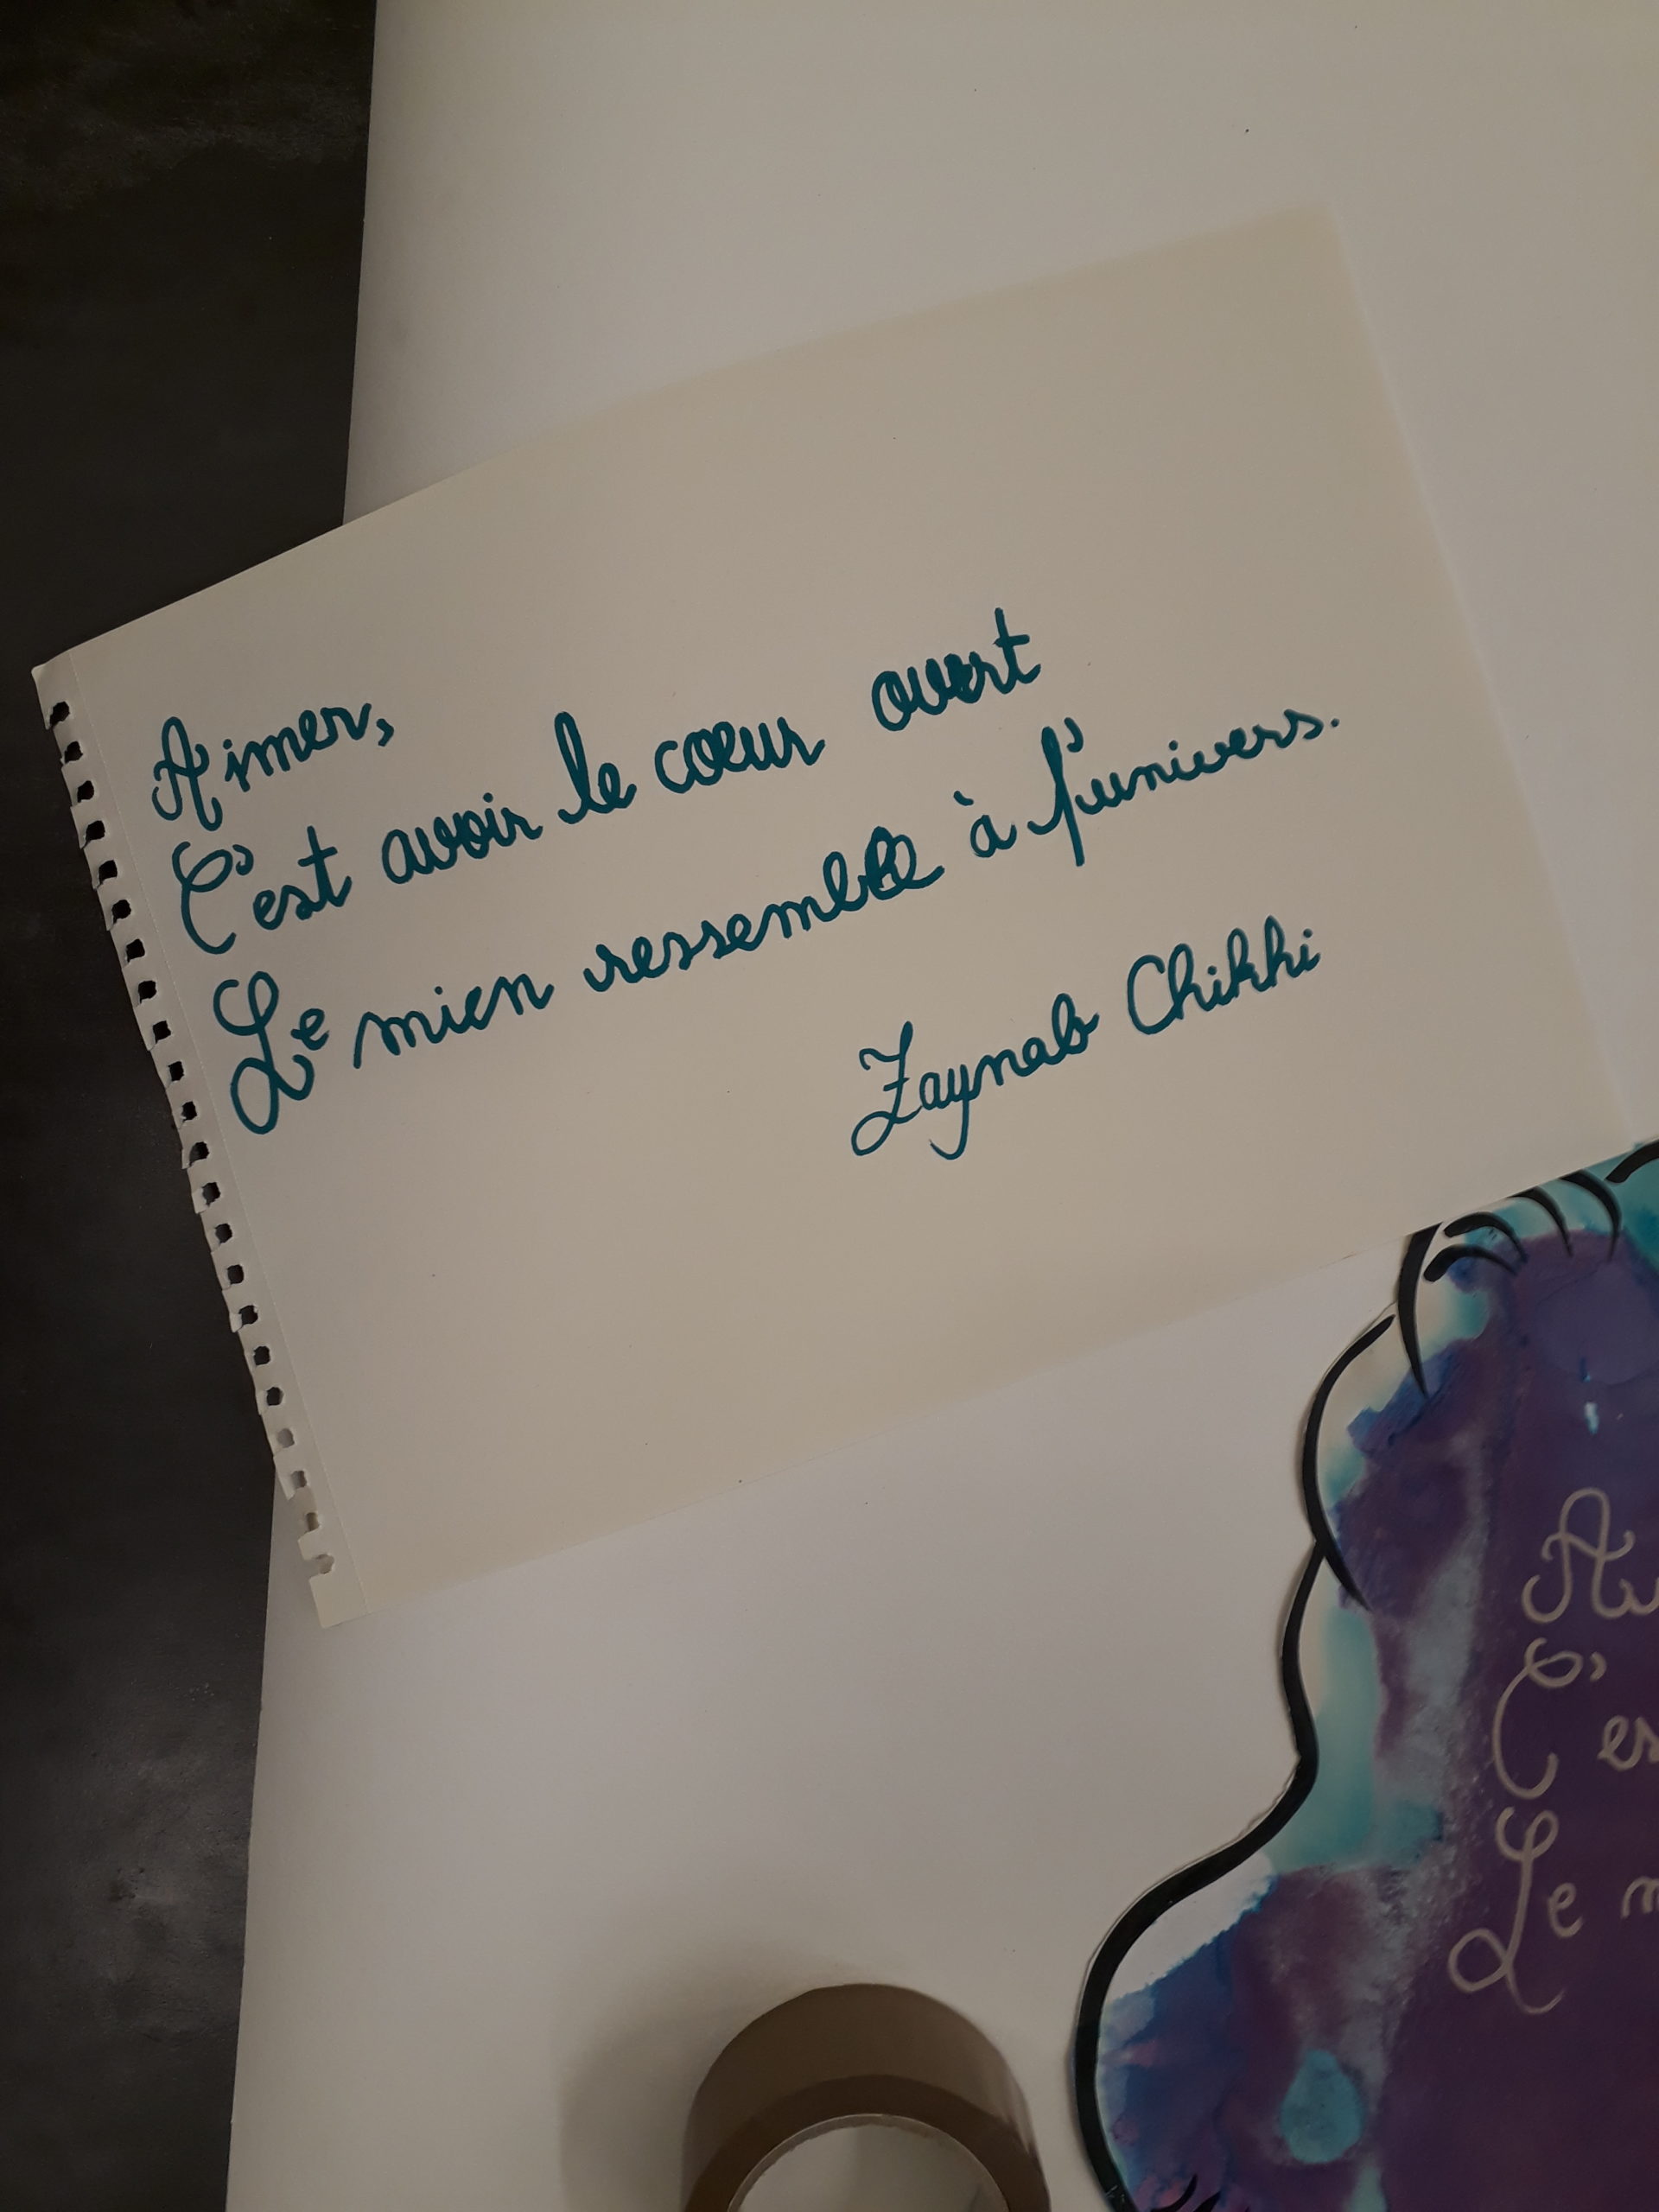 Aimer,
C'est avoir le cœur ouvert
Le mien ressemble à l'univers.
Zaynab Chikhi
C'es
Le m